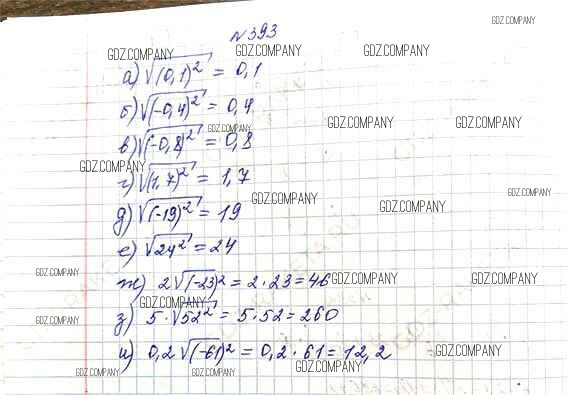 N 393
GDZ.COMPANY
GDZ.COMPANY GDZ.COMPANY GDZ.COMPANY
а) √(0,1)² = 0,1
б) √(-0,4)² = 0,4
GDZ.COMPANY GDZ.COMPANY GDZ.COMPANY
в) √(-0,8)² = 0,8
GDZ.COMPANY
г) √(1,7)² = 1,7
GDZ.COMPANY GDZ.COMPANY GDZ.COMPANY
д) √(-19)² = 19
е) √24² = 24
GDZ.COMPANY GDZ.COMPANY GDZ.COMPANY
ж) 2√(-23)² = 2·23 = 46
GDZ.COMPANY
з) 5·√52² = 5·52 = 260
GDZ.COMPANY
и) 0,2√(-61)² = 0,2·61 = 12,2
GDZ.COMPANY
GDZ.COMPANY GDZ.COMPANY GDZ.COMPANY